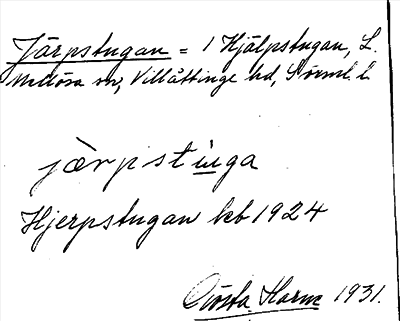 Järpstugan = 1 Hjälpstugan, L.
Mellösa sn, Villåttinge hd, Sörml. l.
jàrpstu̲ga
Hjerpstugan kb 1924
Gösta Harne 1931.